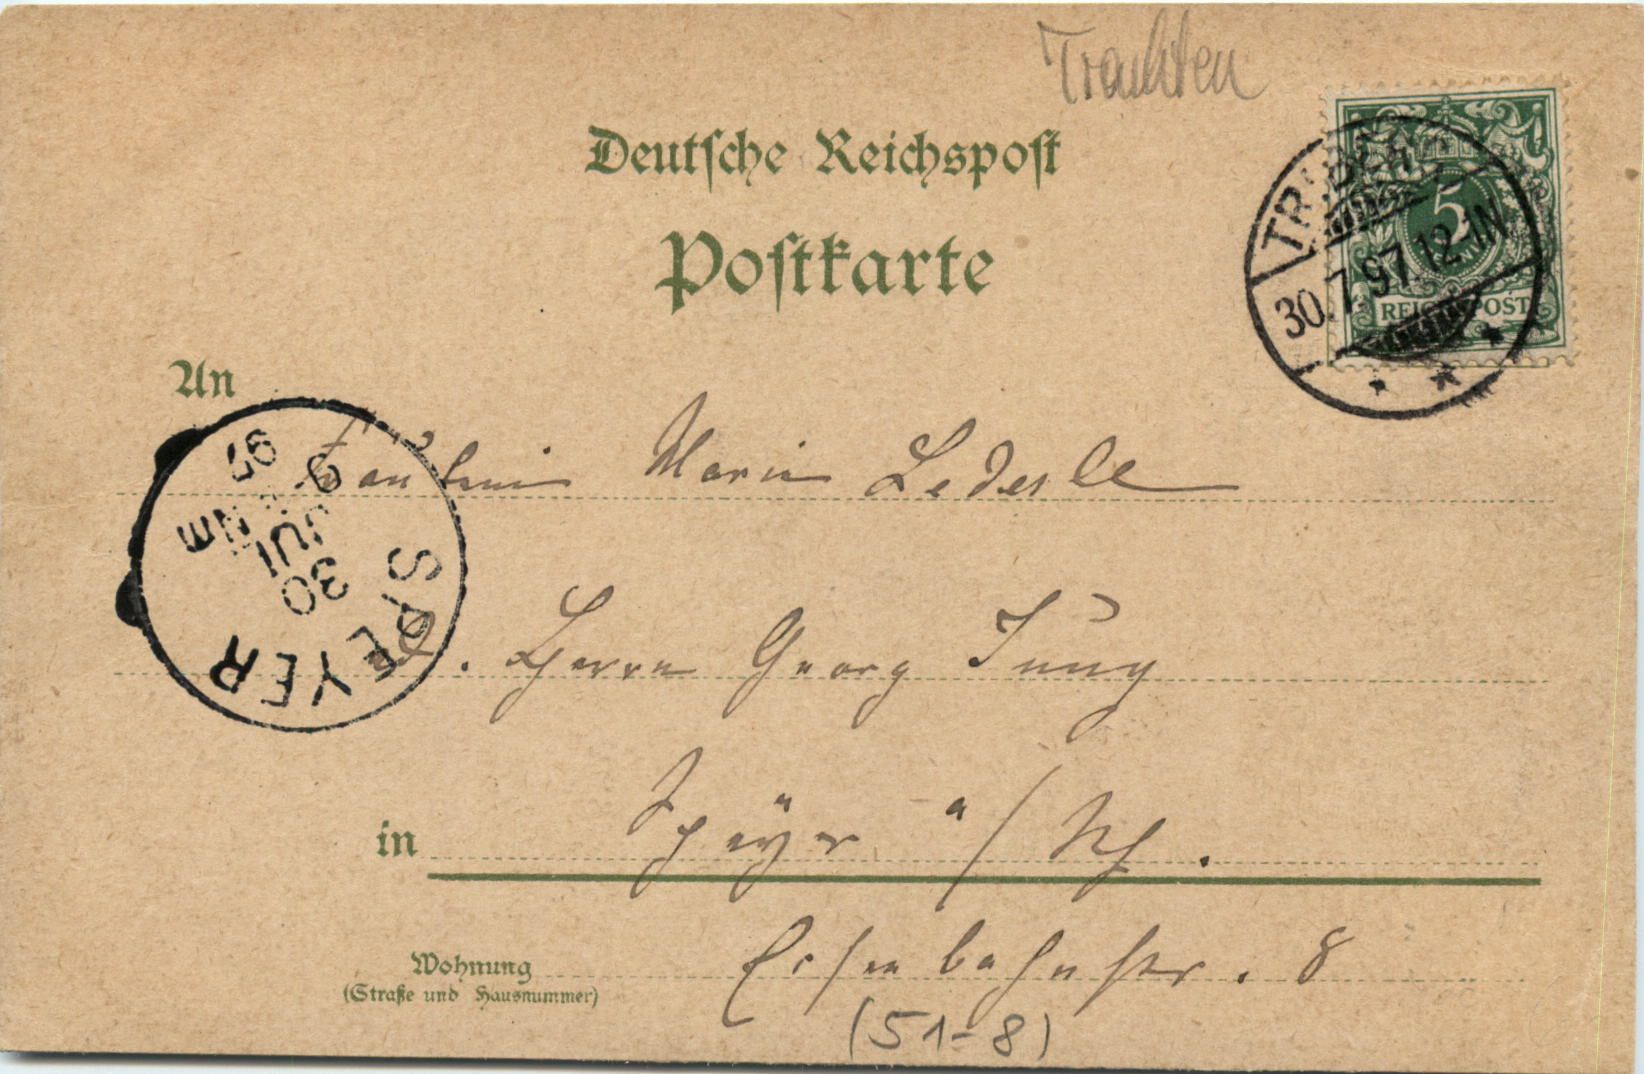 Trachten
Deutsche Reichspost
Postkarte
TRIBERG
30.7.97.12-1N.
5
REICHSPOST
An
Fräulein Marie Lederle
Herrn Georg Jung
SPEYER
30
JUL
NM
97
in Speyer a/Rh.
Wohnung Eisenbahnstr. 8
(Straße und Hausnummer)
(51-8)